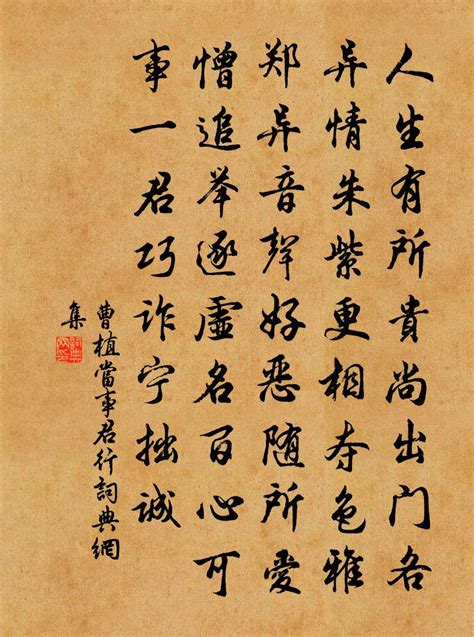 人生有所貴尚出门各
异情朱紫更相夺色雅
郑异音聲好惡随所愛
憎追举逐虚名百心可
事一君巧诈宁拙诚
曹植當事君行詞典網
集